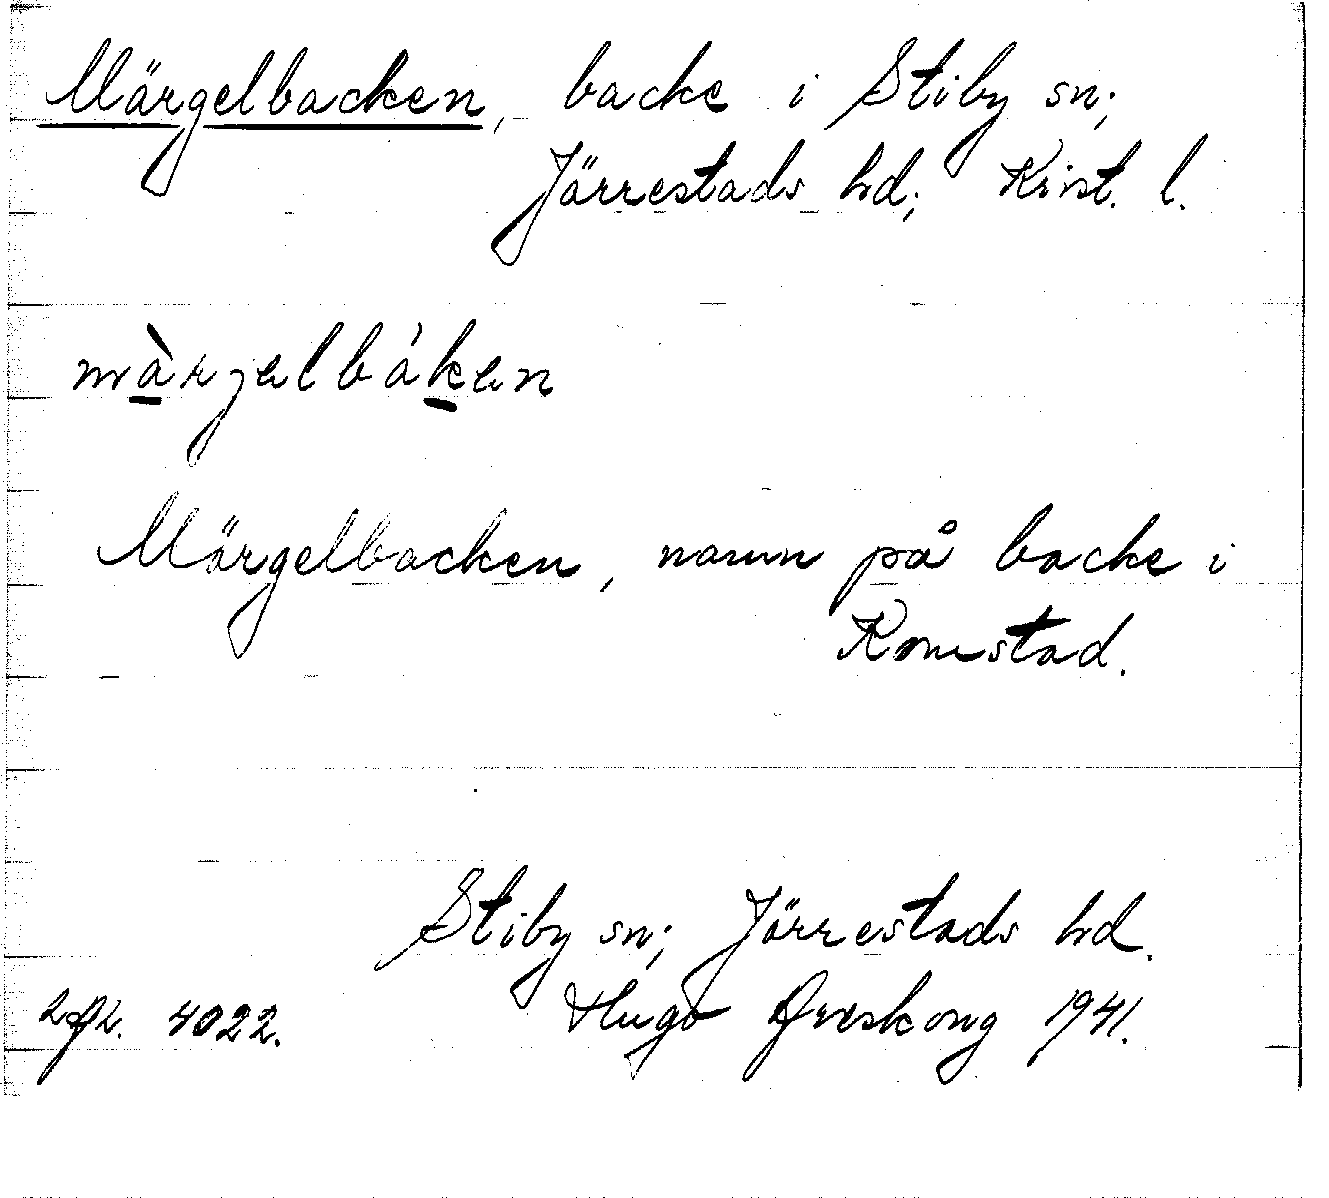 Märgelbacken, backe i Stiby sn;
Järrestads hd; Krist. l.
màrjelbáken
Märgelbacken, namn på backe i
Komstad.
Stiby sn; Järrestads hd.
4022. Hugo 1941.